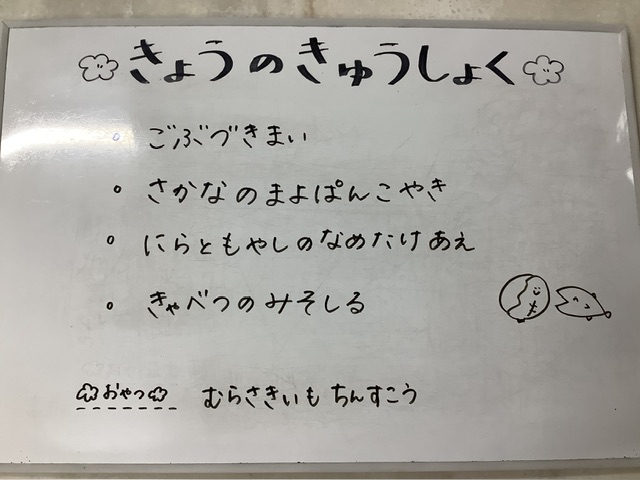 きょうのきゅうしょく
。ごぶづきまい
。さかなのまよぱんこやき
。にらともやしのなめたけあえ
。きゃべつのみそしる
おやつ むらさきいもちんすこう